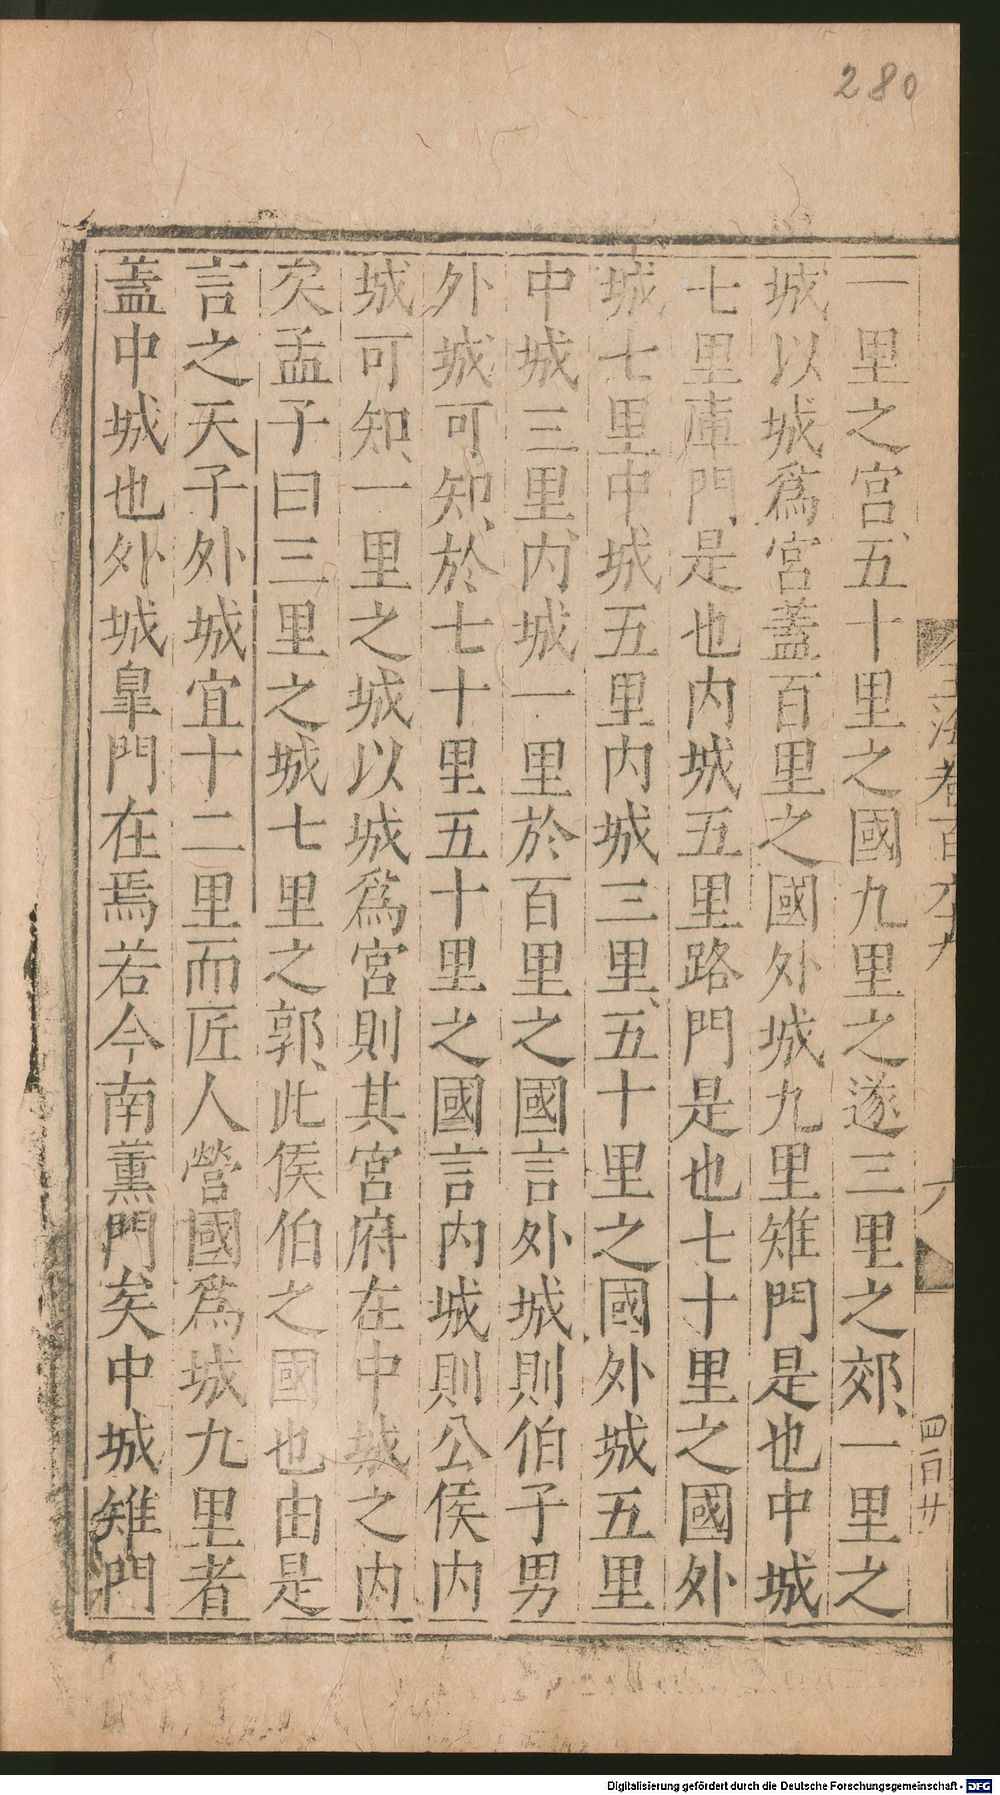 280
一里之宮、五十里之國九里之遂三里之郊、一里之
城以城爲宮蓋百里之國外城九里雉門是也中城
七里庫門、是也内城五里路門是也七十里之國外
城七里中城五里内城三里、五十里之國外城五里
中城三里、内城一里於百里之國言外城則伯子男
外城可知、於七十里五十里之國言内城則公侯内
城可知、一里之城以城爲宮則其宮府在中城之内
矣孟子曰三里之城七里之郭、此侯伯之國也由是
言之天子外城宜十二里而匠人營國爲城九里者
蓋中城也外城臯門在焉若今南薰門矣中城雉門
卷百六十九
六
四百廿
Digitalisierung gefördert durch die Deutsche Forschungsgemeinschaft - DFG